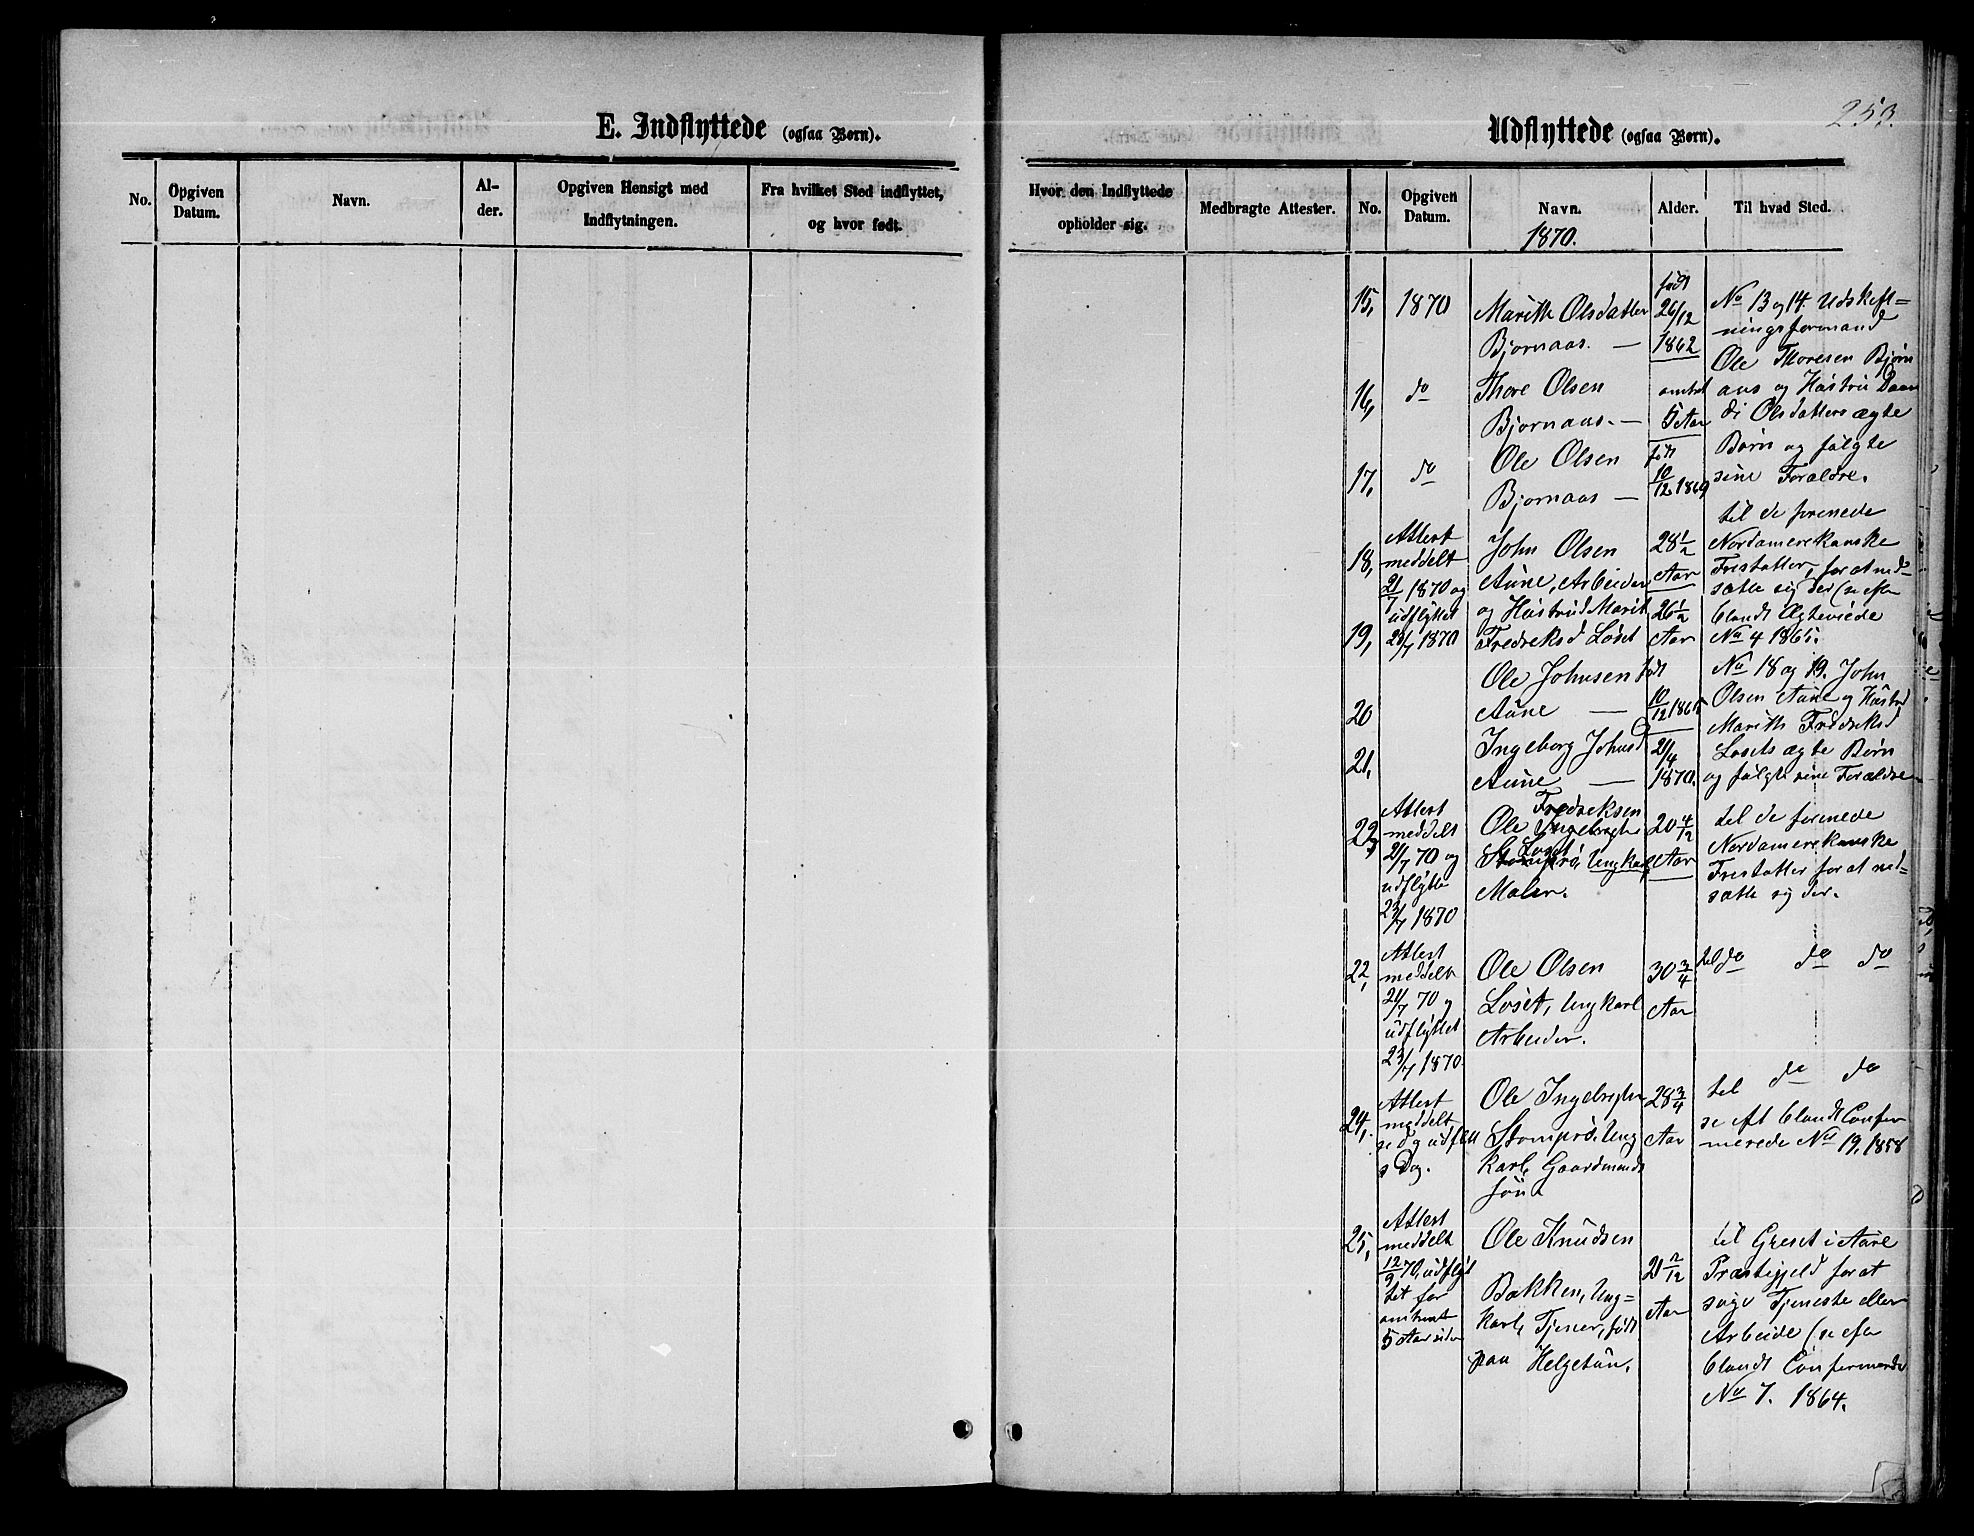 253.
E. Indflyttede (ogsaa Børn).
Udflyttede (ogsaa Børn).
No.
Opgiven Datum.
Navn.
Al-
der.
Opgiven Hensigt med
Indflytningen.
Fra hvilket Sted indflyttet,
og hvor født.
Hvor den Indflyttede
opholder sig.
Medbragte Attester.
No.
Opgiven
Datum.
Navn.
1870.
Alder.
Til hvad Sted.
15,
1870
Marith Olsdatter
Bjørnaas. —
født
26/12
1862
No 13 og 14. Udskift=
ningsformand
Ole Thoresen Bjørn
aas og Hustru
di Olsdatters ægte
Børn og fulgte
sine Forældre.
16,
do
Thore Olsen
Bjørnaas. —
omtrent
5 Aar
17,
do
Ole Olsen
Bjørnaas —
født
10/12 1869
18,
Attest
meddelt
21/7 1870 og
udflyttet
23/7 1870
John Olsen
Aune, Arbeider
og Hustrud Marit
Fredriksd Løset
28 1/2
Aar
til de forenede
Nordamerekanske
Fristatter, for at ned-
sætte sig der (se efter
blandt Ægteviede
No 4 1865.
19,
26 1/2
Aar
20
Ole Johnsen
Aune —
født
10/12 1865
No 18 og 19. John
Olsen Aune og Hustru
Marith Fredriksd
Løsets ægte Børn
og fulgte sine Forældre
21,
Ingeborg Johnsd
Aune —
2/4
1870.
Attest
meddelt
21/7 70 og
udflytte
23/7 1870
Fredriksen
Ole Ingebrigts
Løset
Stomprø, Ungkarl
Maler.
20 4/12
Aar
til de forenede
Nordamerekanske
Fristatter for at ned=
sætte sig der.
22,
Attest
meddelt
21/7 70 og
udflyttet
23/7 1870.
Ole Olsen
Løset, Ungkarl
Arbeider.
30 3/4
Aar
til do do do
24,
Attest
meddelt
s Dag.
Ole Ingebrigtsen
Stomprø. Ung
karl, Gaardmands
søn.
28 3/4
Aar
til do do
se eft blandt Confir
merede No 19, 1858
25,
Attest
meddelt
12/9 70, udflyt
tet for
omtrent
5 Aar siden
Ole Knudsen
Bakken, Ung=
karl, Tjener, født
paa Helgetun.
21 2/12
Aar
til Greset i Aure
Præstegjeld for at
søge Tjeneste eller
Arbeide (se efter
blandt Confirmerede
No 7. 1864.